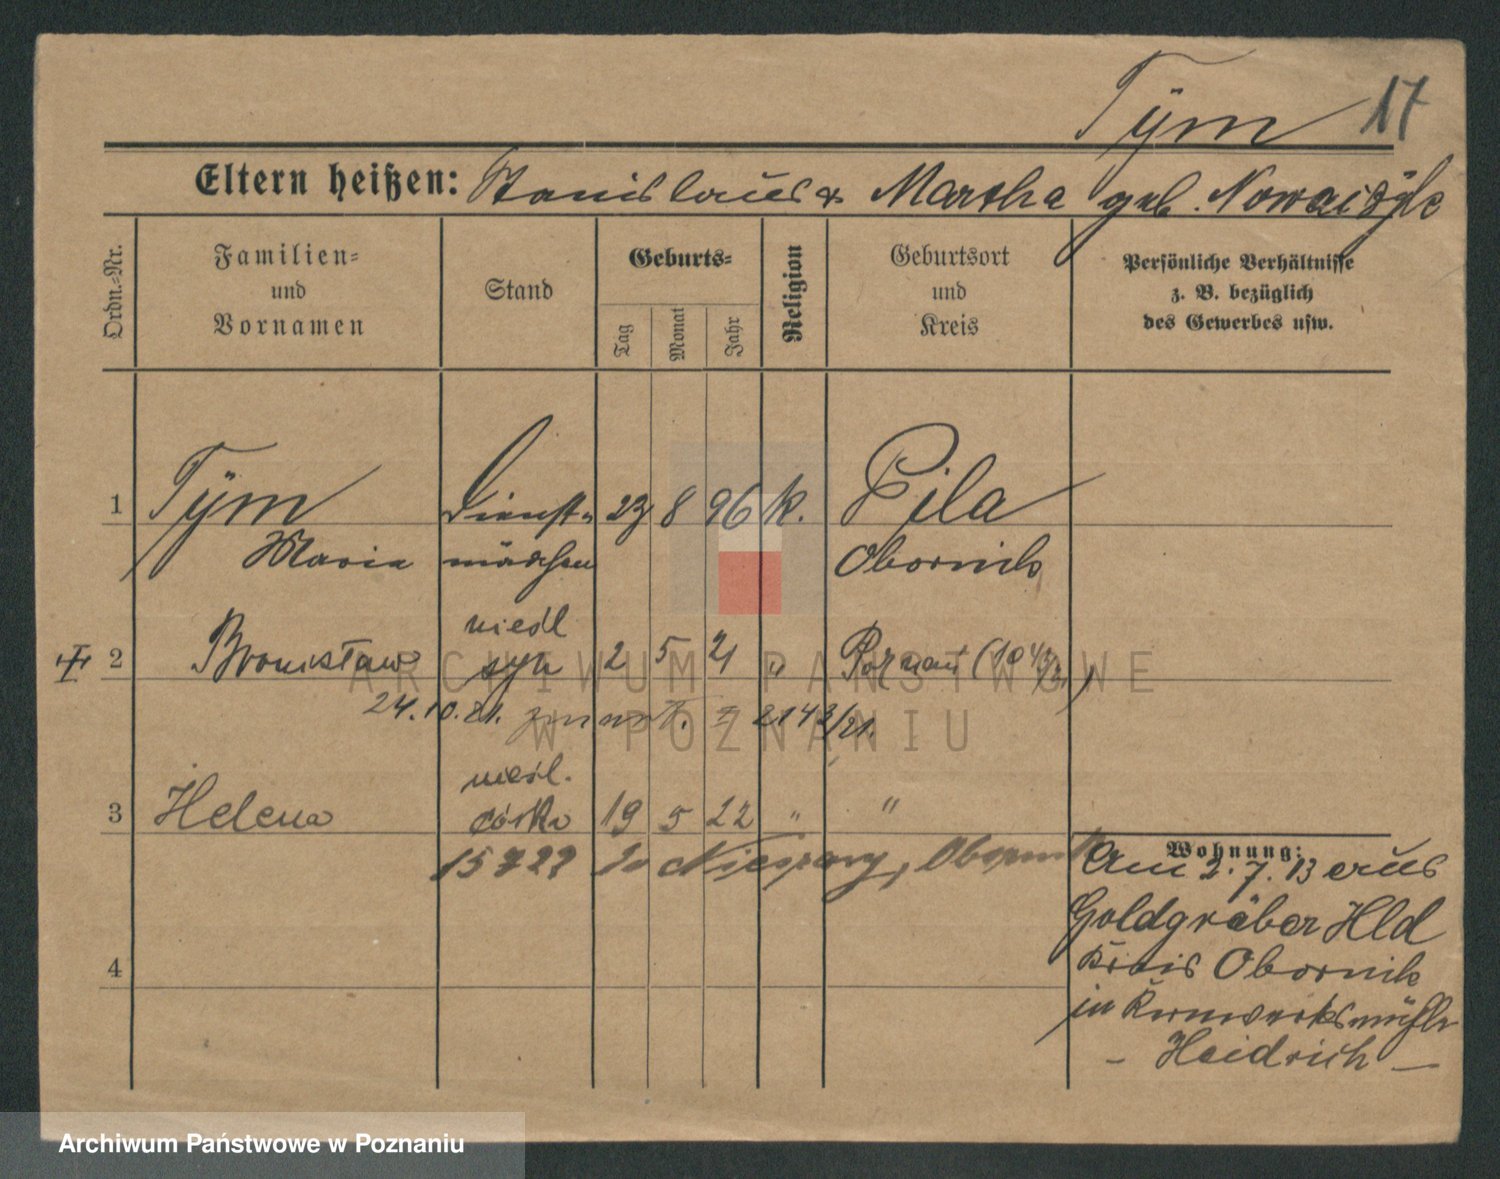 Tÿm 17
Eltern heißen: Stanislaus & Martha geb. Nowaczyk
Ordn.-Nr.
Familien-
und
Vornamen
Stand
Geburts-
Tag
Monat
Jahr
Religion
Geburtsort
und
Kreis
Persönliche Verhältnisse
z. B. bezüglich
des Gewerbes usw.
1 Tÿm Dienst- 23 8 96 k. Pila
Maria mädchen Obornik
nieśl
2 Bronisław syn 2 5 21 " Poznań
24.10.21. 2143/21.
nieśl.
3 Helena córka 19 5 22 " "
15 7 22 Obornik
Wohnung:
Am 2.7.13 aus
Goldgräber Hld
Kreis Obornik
in Kernwerksmühle
- Heidrich -
4
ARCHIWUM PAŃSTWOWE
W POZNANIU
Archiwum Państwowe w Poznaniu